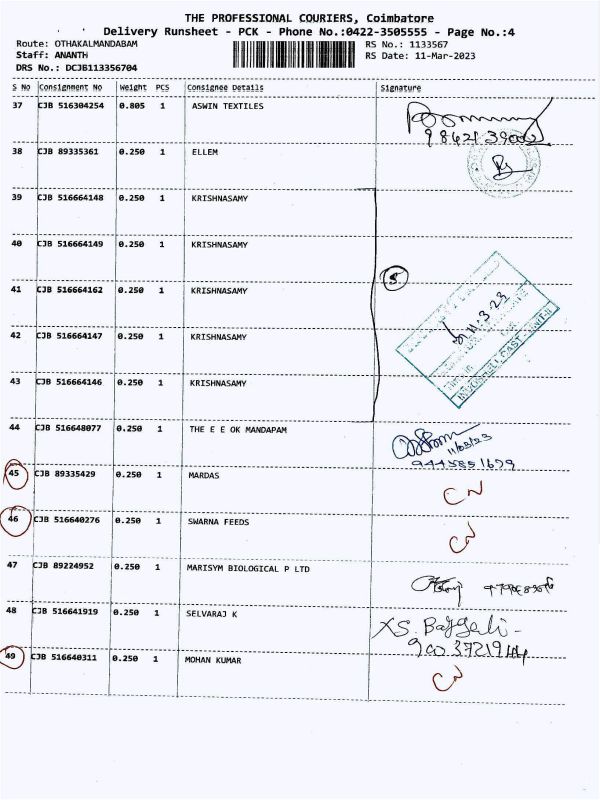 THE PROFESSIONAL COURIERS, Coimbatore
Delivery Runsheet - PCK - Phone No.:0422-3505555 - Page No.:4
Route: OTHAKALMANDABAM RS No.: 1133567
Staff: ANANTH RS Date: 11-Mar-2023
DRS No.: DCJB113356704
S No Consignment No Weight PCS Consignee Details Signature
37 CJB 516304254 0.805 1 ASWIN TEXTILES
38 CJB 89335361 0.250 1 ELLEM
39 CJB 516664148 0.250 1 KRISHNASAMY
40 CJB 516664149 0.250 1 KRISHNASAMY
5
41 CJB 516664162 0.250 1 KRISHNASAMY
11-3-23
42 CJB 516664147 0.250 1 KRISHNASAMY
43 CJB 516664146 0.250 1 KRISHNASAMY
44 CJB 516648077 0.250 1 THE E E OK MANDAPAM
11/03/23
9445851679
45 CJB 89335429 0.250 1 MARDAS CN
46 CJB 516640276 0.250 1 SWARNA FEEDS CN
47 CJB 89224952 0.250 1 MARISYM BIOLOGICAL P LTD
48 CJB 516641919 0.250 1 SELVARAJ K
49 CJB 516640311 0.250 1 MOHAN KUMAR CN